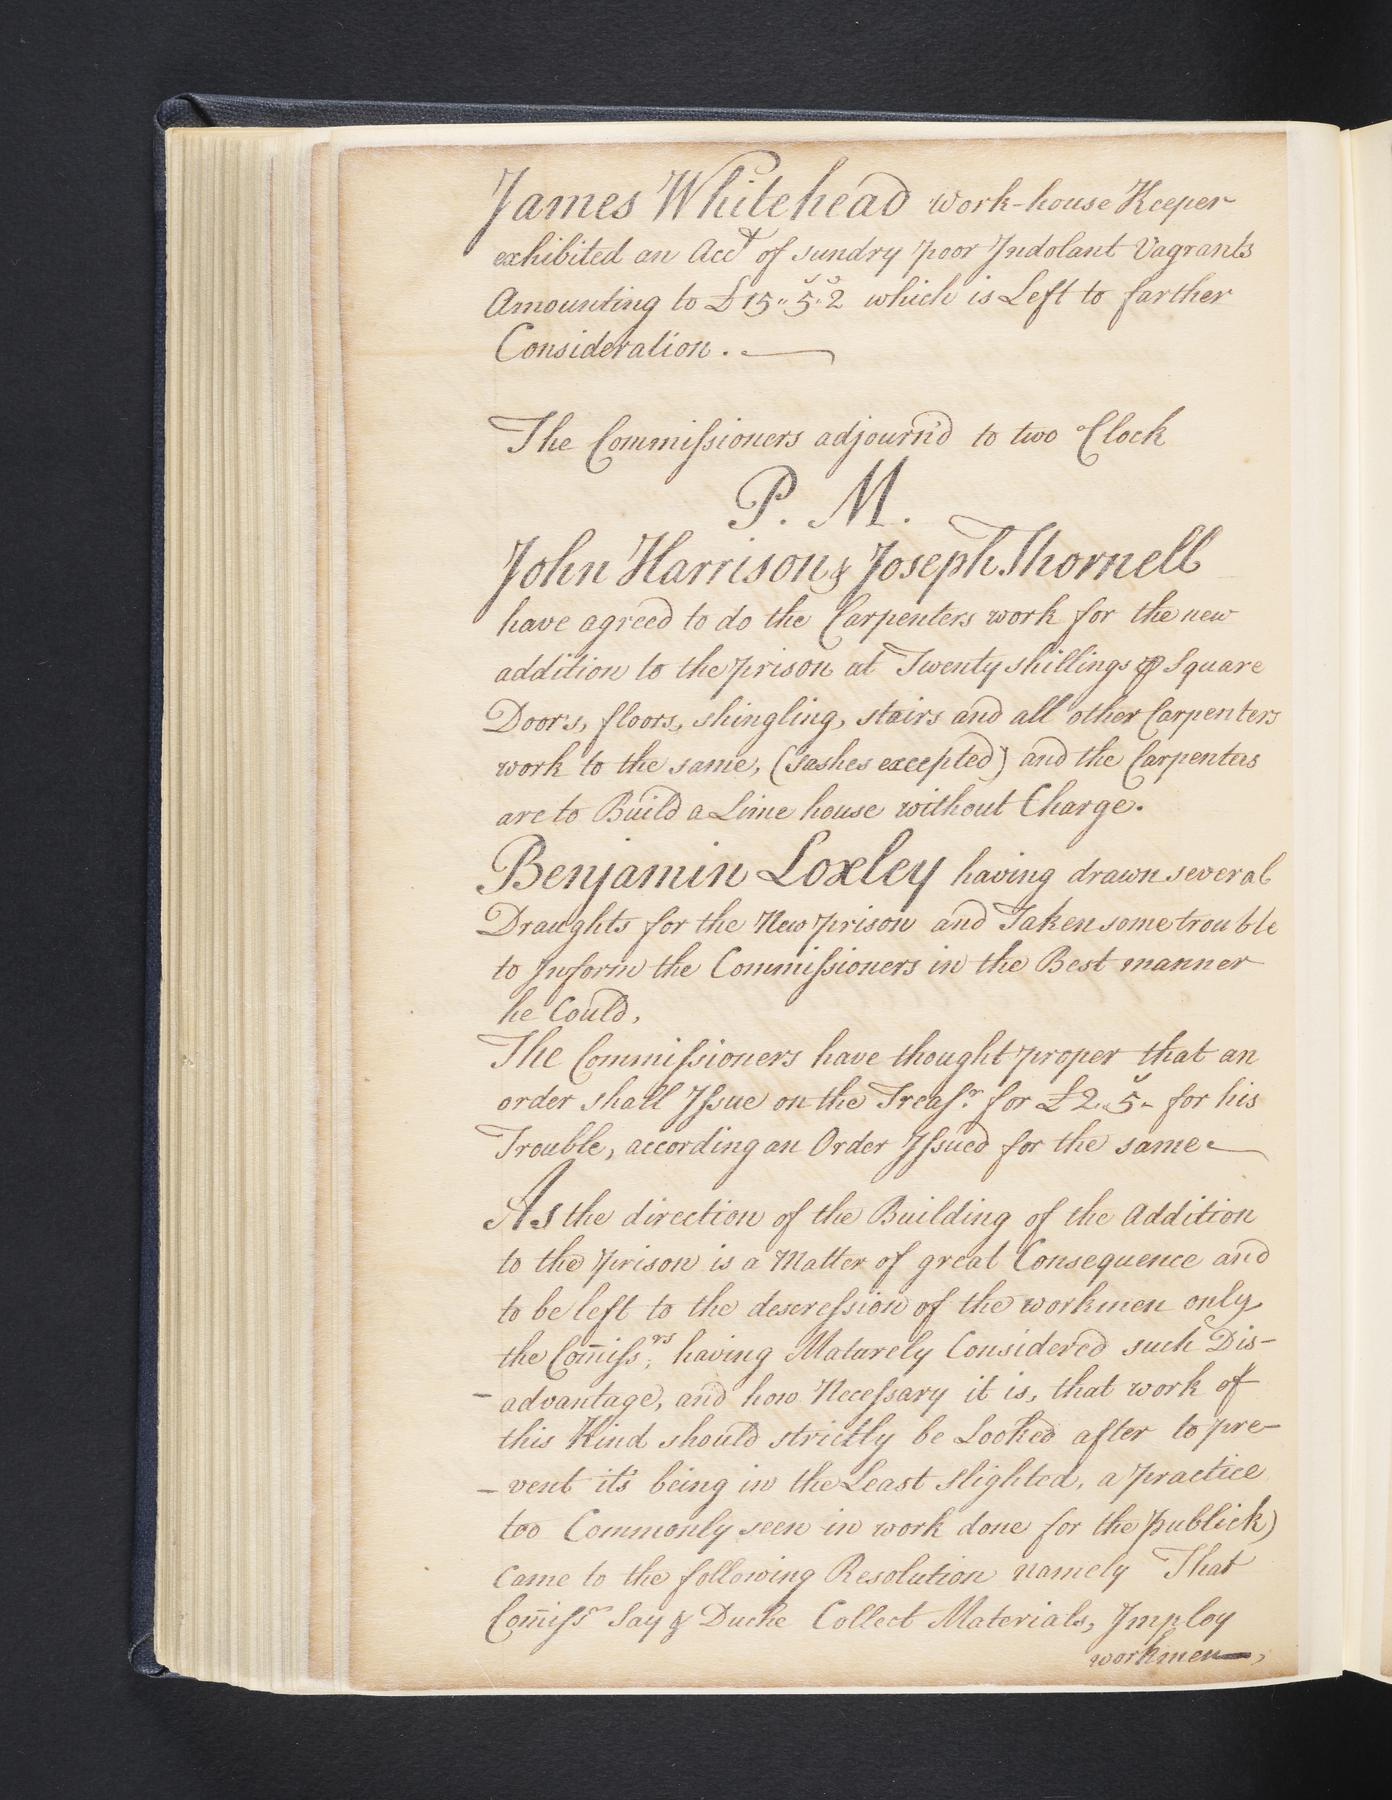 James Whitehead work-house Keeper
exhibited an Acct of sundry poor Indolant Vagrants
Amounting to £15..5..2 which is Left to farther
Consideration.
The Commiſsioners adjourn'd to two Clock
P. M.
John Harrison & Joseph Thornell
have agreed to do the Carpenters work for the new
addition to the prison at Twenty shillings ⅌ Square
Doors, floors, shingling, stairs and all other Carpenters
work to the same, (sashes excepted) and the Carpenters
are to Build a Lime house without Charge.
Benjamin Loxley having drawn several
Draughts for the New prison and Taken some trouble
to Inform the Commiſsioners in the Best manner
he Could,
The Commiſsioners have thought proper that an
order shall Iſsue on the Treaſr. for £2..5- for his
Trouble, according an Order Iſsued for the same
As the direction of the Building of the Addition
to the prison is a Matter of great Consequence and
to be left to the descreſsion of the workmen only
the Com̄iſsrs; having Maturely Considered such Dis-
-advantage, and how Neceſsary it is, that work of
this Kind should strictly be Looked after to pre-
-vent it's being in the Least slighted, a practice
too Commonly seen in work done for the publick)
Came to the following Resolution namely That
Com̄iſsr Say & Duche Collect Materials, Imploy
workmen,